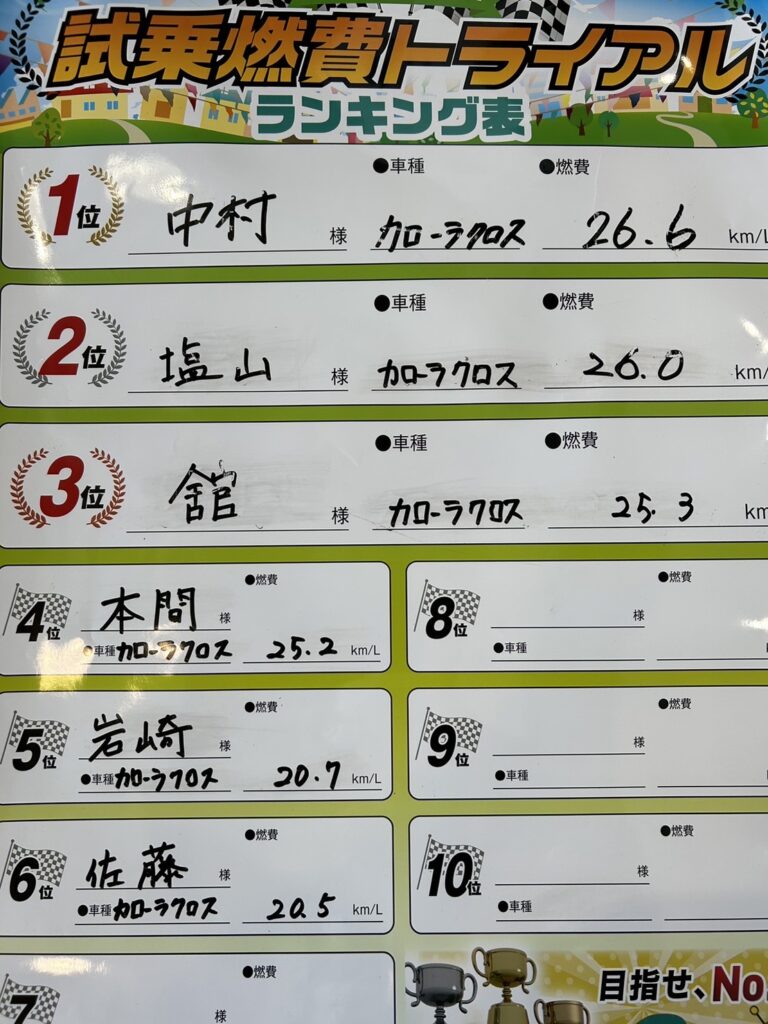 試乗燃費トライアル
ランキング表
1位 中村 様 ●車種 カローラクロス ●燃費 26.6 km/L
2位 塩山 様 ●車種 カローラクロス ●燃費 26.0 km/
3位 舘 様 ●車種 カローラクロス ●燃費 25.3 km
4位 本間 様 ●燃費
●車種 カローラクロス 25.2 km/L
5位 岩崎 様 ●燃費
●車種 カローラクロス 20.7 km/L
6位 佐藤 様 ●燃費
●車種 カローラクロス 20.5 km/L
7 様 ●燃費
8位 様 ●燃費
●車種
9位 様 ●燃費
●車種
10位 様 ●燃費
●車種
目指せ、No.